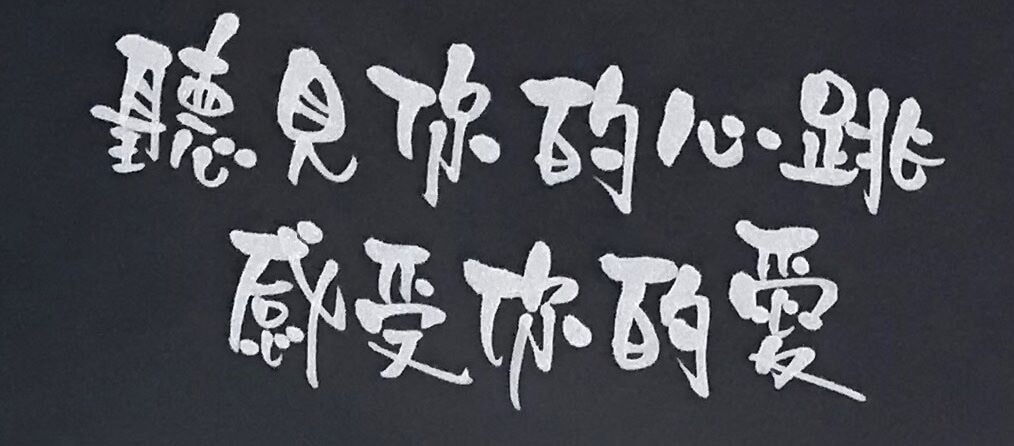 聽見你的心跳
感受你的愛